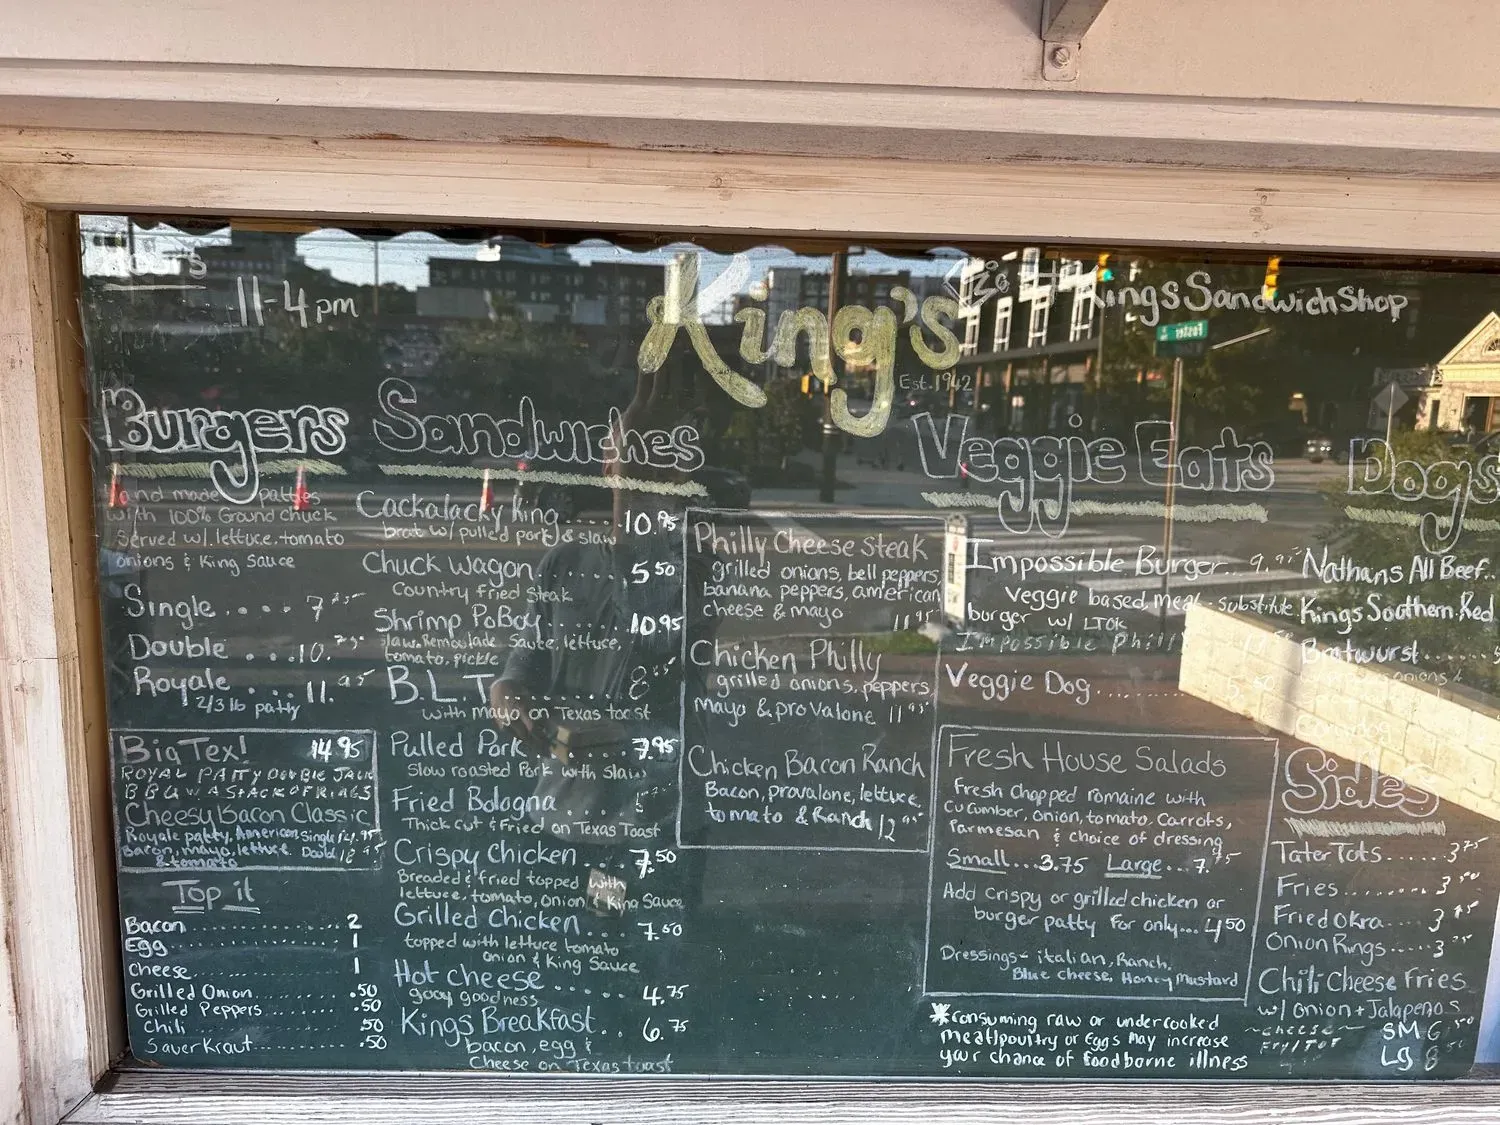 11-4pm
King's
Est. 1942
KingsSandwichShop
Foster
Burgers
Hand made patties
with 100% Ground Chuck
Served w/ lettuce, tomato
onions & King Sauce
Single.... 7
Double....10.
Royale.... 11.95
2/3 lb patty
BigTex! 14.95
ROYAL PATTY DOUBLE JACK
BBQ W A STACK OF RINGS
Cheesy Bacon Classic
Royale patty, American Single
Bacon, mayo, lettuce Double
& tomato
Top it
Bacon 2
Egg 1
Cheese 1
Grilled Onion .50
Grilled Peppers .50
Chili .50
SauerKraut .50
Sandwiches
Cackalacky King..... 10.95
brat w/ pulled pork & slaw
Chuck Wagon...... 5 50
Country fried Steak
Shrimp PoBoy 10.95
slaw, Remoulade Sauce, lettuce,
tomato, pickle
B.L.T......... 8
with mayo on Texas toast
Pulled Pork...... 7.95
Slow roasted Pork with slaw
Fried Bologna... 5
Thick Cut & Fried on Texas Toast
Crispy Chicken.... 7.50
Breaded & fried topped with
lettuce, tomato, onion & King Sauce
Grilled Chicken.... 7.50
topped with lettuce tomato
onion & King Sauce
Hot cheese..... 4.75
gooy goodness
Kings Breakfast.. 6.75
bacon, egg &
Cheese on Texas toast
Philly Cheese Steak
grilled onions, bell peppers,
banana peppers, american
cheese & mayo 11 95
Chicken Philly
grilled onions, peppers,
Mayo & provalone 11 95
Chicken Bacon Ranch
Bacon, provalone, lettuce,
tomato & Ranch 12
Veggie Eats
Impossible Burger... 9.
Veggie based, meat-substitute
burger w/ LTOK
Impossible Philly
Veggie Dog........... 5.
Fresh House Salads
Fresh chopped romaine with
Cucumber, onion, tomato, Carrots,
Parmesan & choice of dressing
Small...3.75 Large...7.
Add Crispy or grilled chicken or
burger patty for only... 4 50
Dressings- italian, Ranch,
Blue cheese, Honey Mustard
*Consuming raw or undercooked
meat/poultry or Eggs May increase
your chance of foodborne illness
Dogs
Nathans All Beef..
Kings Southern Red
Bratwurst......
Sides
Tater Tots...... 3
Fries........ 3
Fried Okra.... 3
Onion Rings..... 3
Chili Cheese Fries
w/ onion + Jalapenos
~cheese~ SM 6
Fry/Tot Lg 8